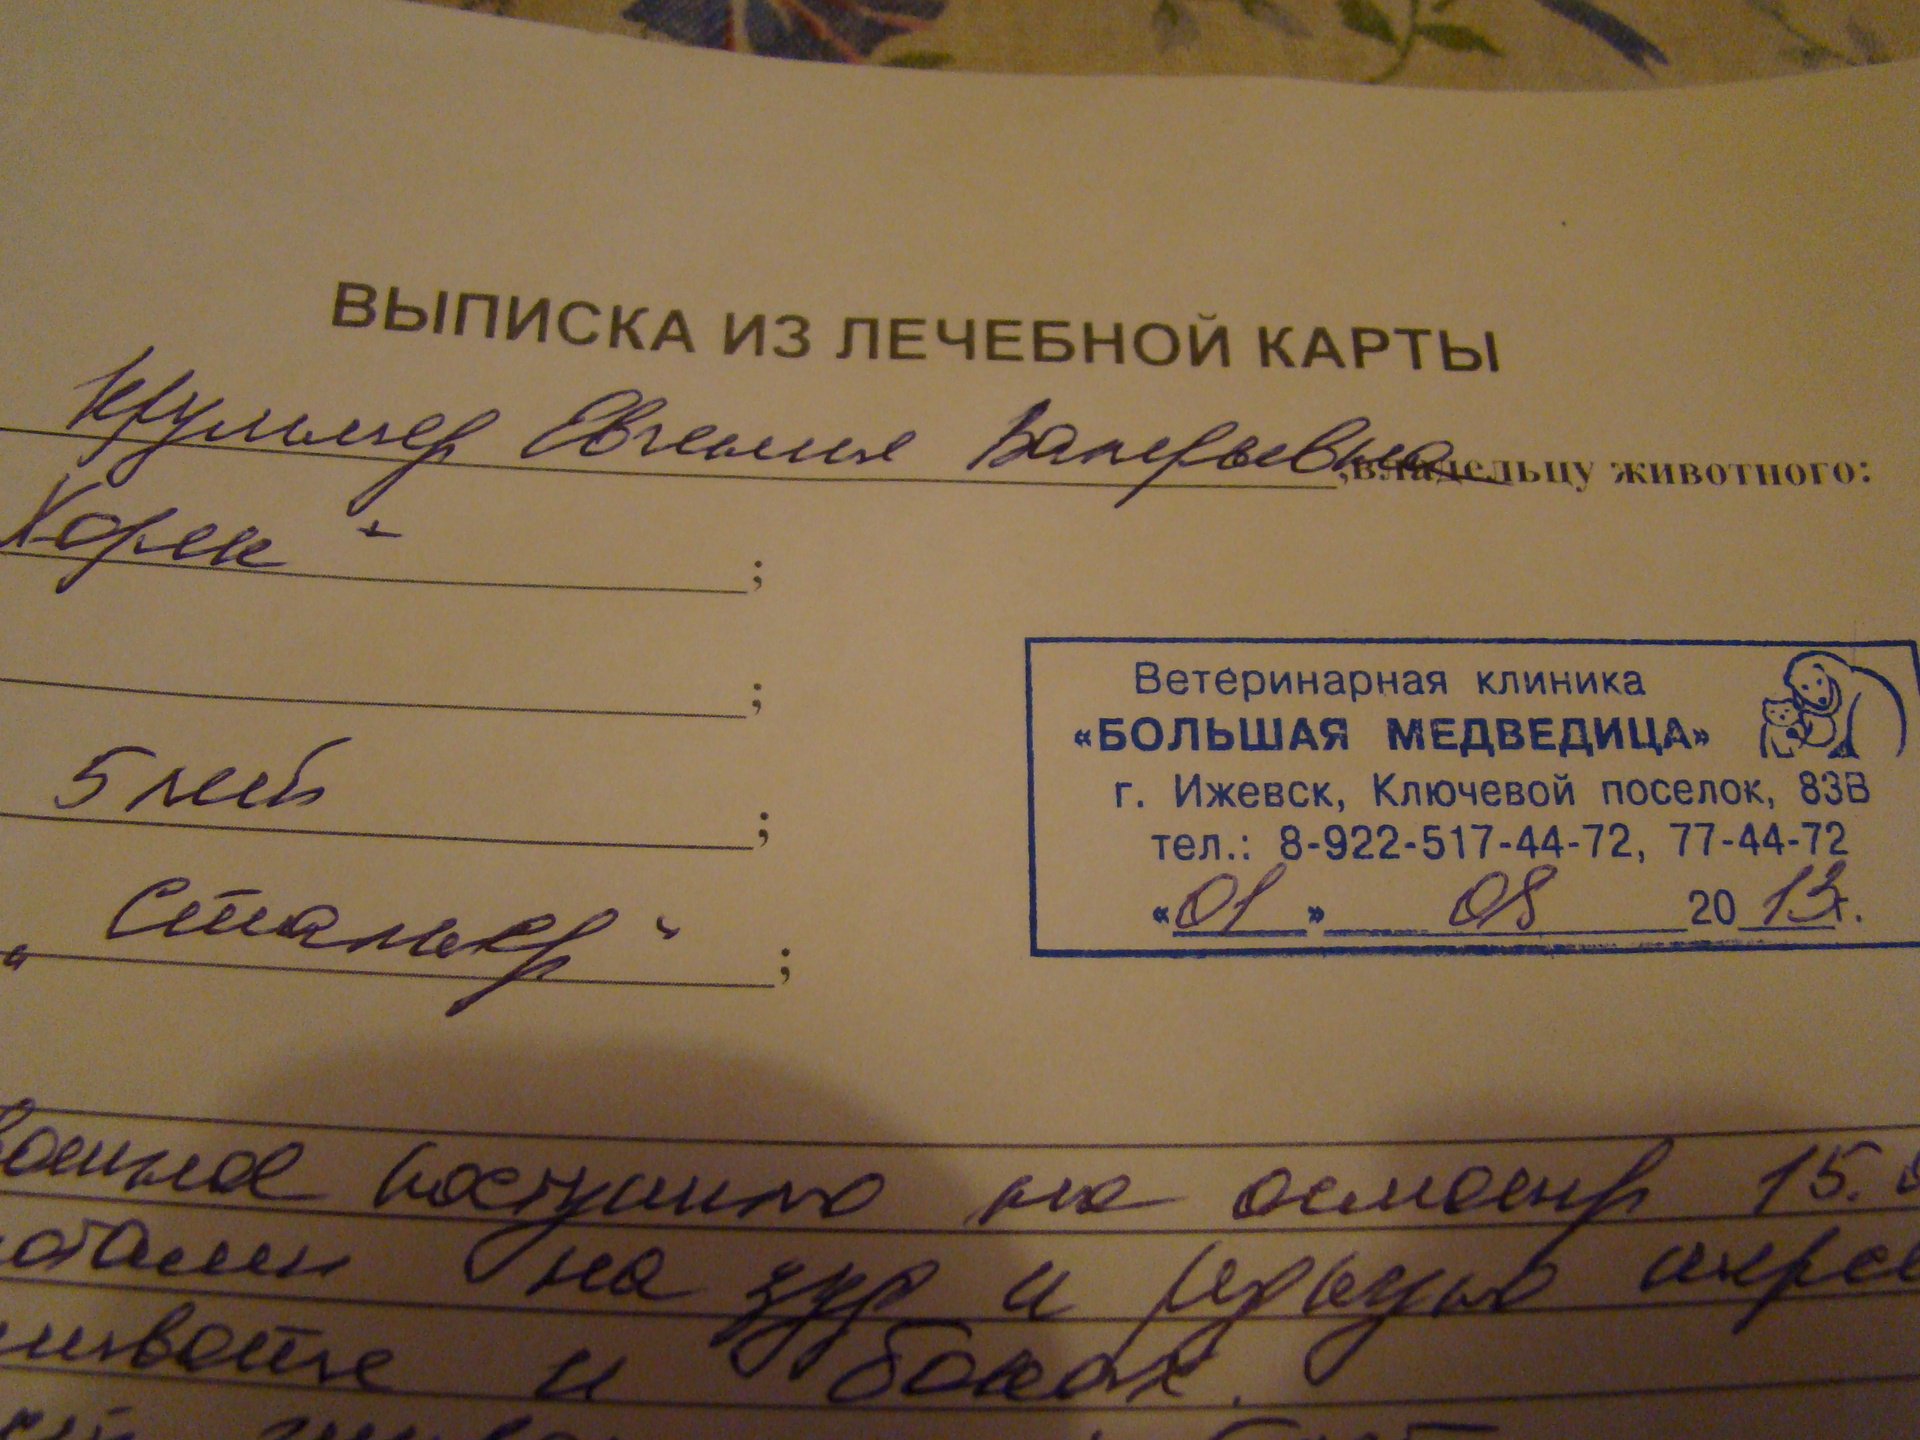 ВЫПИСКА ИЗ ЛЕЧЕБНОЙ КАРТЫ
Евгения Валерьевна, владельцу животного:
Хорек - ;
;
5 лет ;
„Сталкер“ ;
Ветеринарная клиника
«БОЛЬШАЯ МЕДВЕДИЦА»
г. Ижевск, Ключевой поселок, 83В
тел.: 8-922-517-44-72, 77-44-72
«01» 08 2013г.
вотное поступило на осмотр 15.
на зуд и
животе и боках.